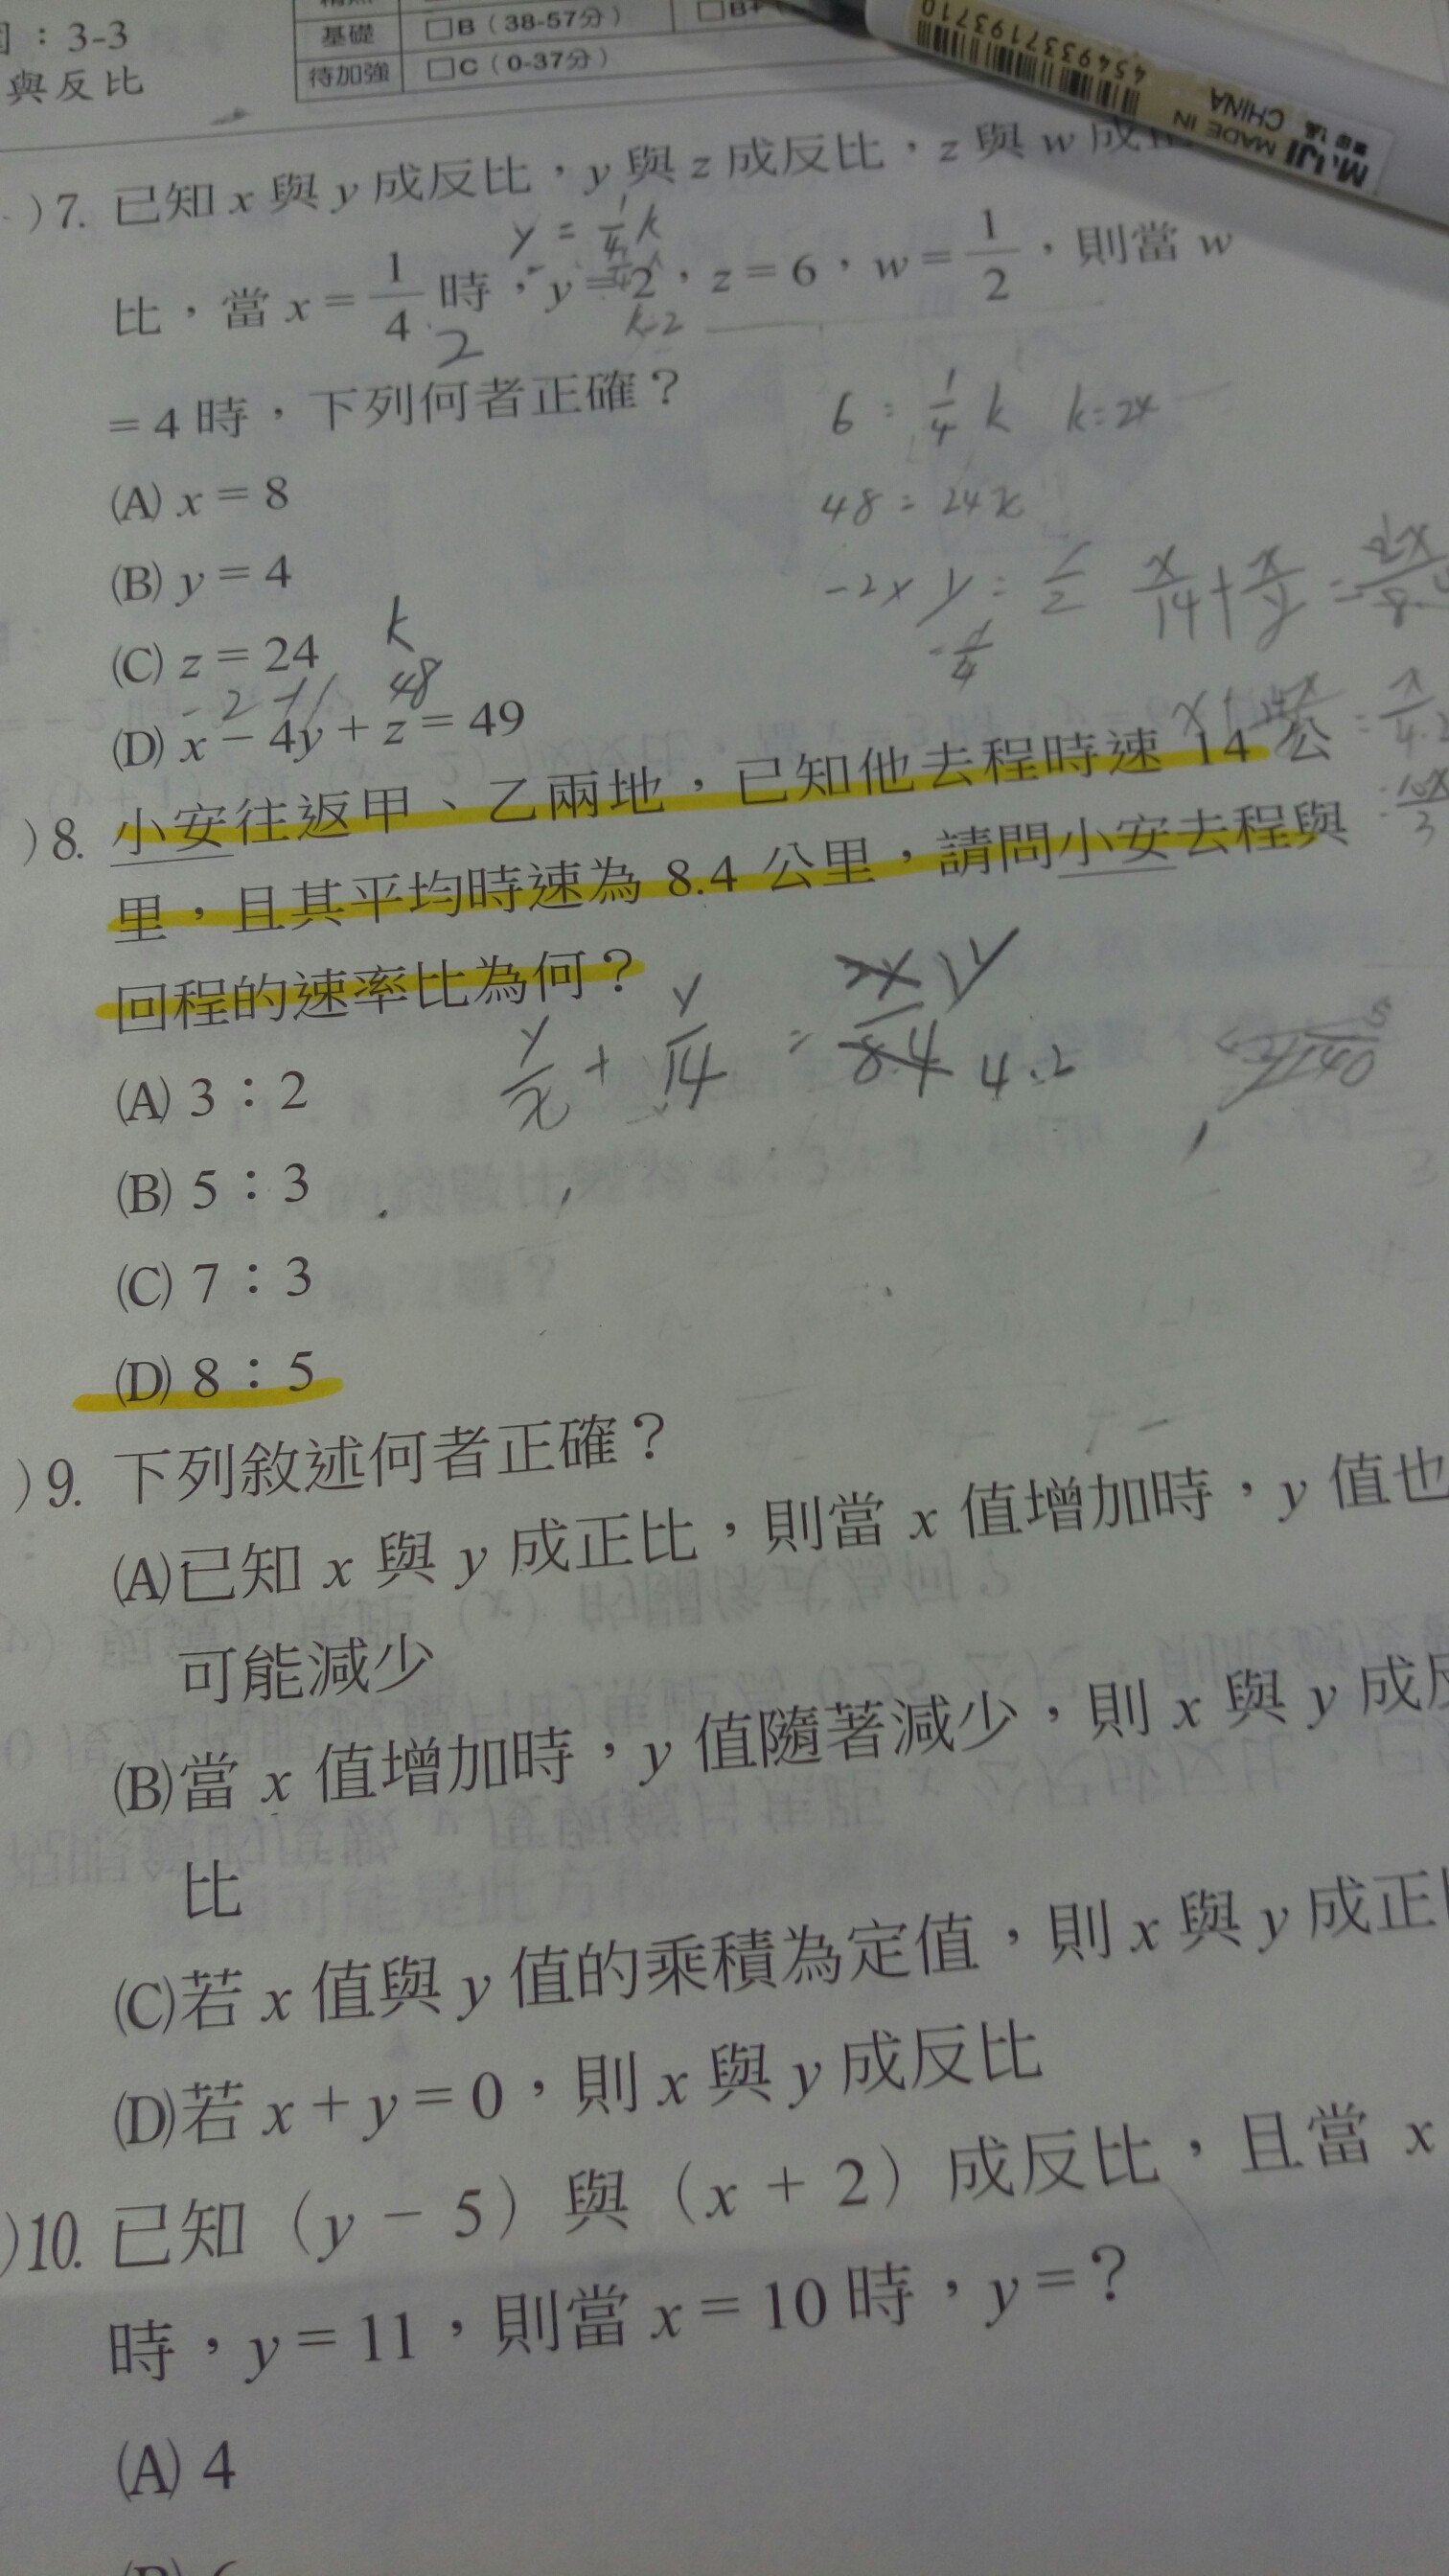 ：3-3
與反比
基礎 □B（38-57分） □B+
待加強 □C（0-37分）
4549337193710
MADE IN CHINA
MUJI
)7. 已知 x 與 y 成反比，y 與 z 成反比，z 與 w 成
y = 1/4 k
比，當 x = 1/4 時，y = 2，z = 6，w = 1/2，則當 w
2 k=2
= 4 時，下列何者正確？
6 = 1/4 k k=24
(A) x = 8
48 = 24x
(B) y = 4
(C) z = 24
k
48
(D) x − 4y + z = 49
)8. 小安往返甲、乙兩地，已知他去程時速 14 公
里，且其平均時速為 8.4 公里，請問小安去程與
回程的速率比為何？
y/x + y/14 = y/4.2
(A) 3：2
(B) 5：3
(C) 7：3
(D) 8：5
)9. 下列敘述何者正確？
(A)已知 x 與 y 成正比，則當 x 值增加時，y 值也
可能減少
(B)當 x 值增加時，y 值隨著減少，則 x 與 y 成反
比
(C)若 x 值與 y 值的乘積為定值，則 x 與 y 成正比
(D)若 x + y = 0，則 x 與 y 成反比
)10. 已知（y − 5）與（x + 2）成反比，且當 x
時，y = 11，則當 x = 10 時，y = ？
(A) 4